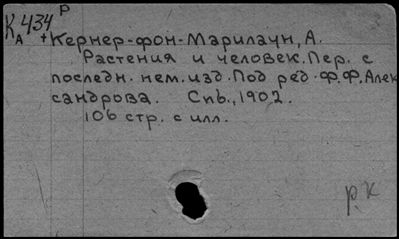 Р
К 434
А
+ Кернер-фон-Марилаун, А.
Растения и человек. Пер. с
последн. нем. изд. Под ред. Ф.Ф. Алек
сандрова. Спб., 1902.
106 стр. с илл.
р.к